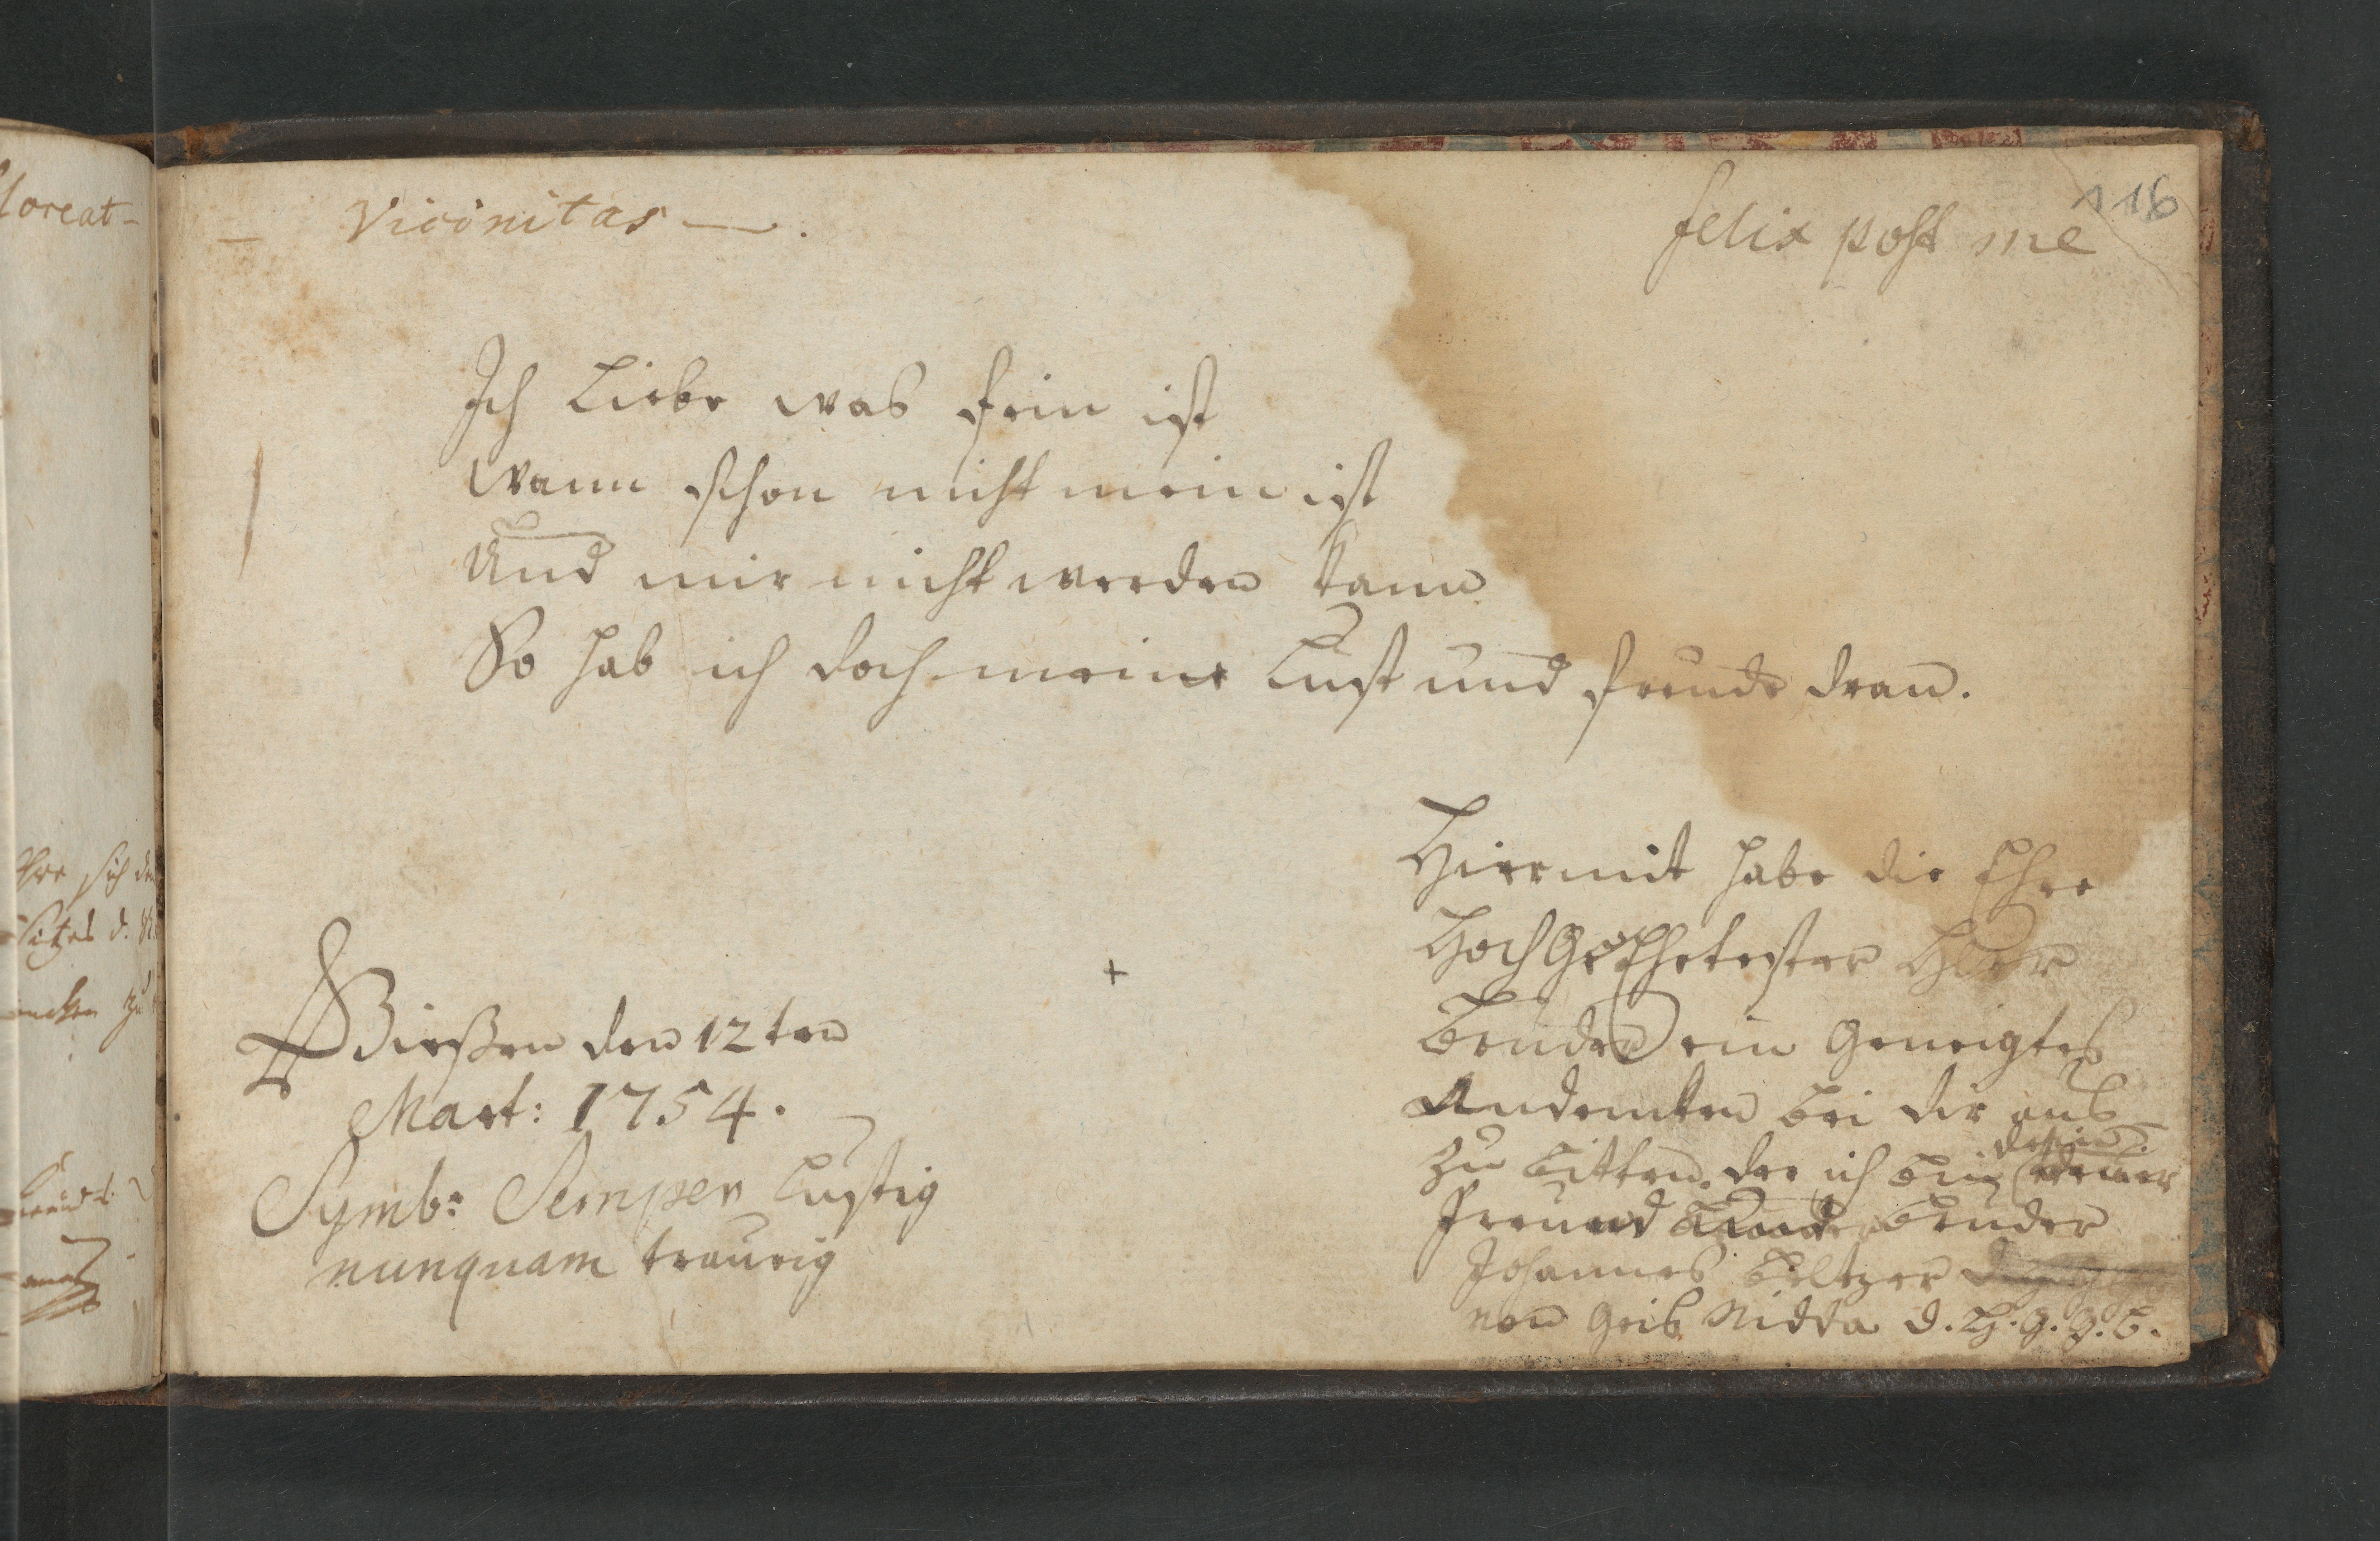 loreat-
Vicinitas —.
felix post me
116
Ich Liebe was fein ist
Wann schon nicht mein ist
Und mir nicht werden kann
So hab ich doch meine Lust und freude dran.
Hiermit habe die Ehre
HochGeEhrtester Herr
Bruder ein Geneigtes
Andencken bei dir aus
zu bitten. der ich bin
dein
freund Bruder
Johannes Beltzer
von Geis Nidda d. G. G. B.
Giessen den 12ten
Mart: 1754.
Symb: Semper Lustig
nunquam traurig